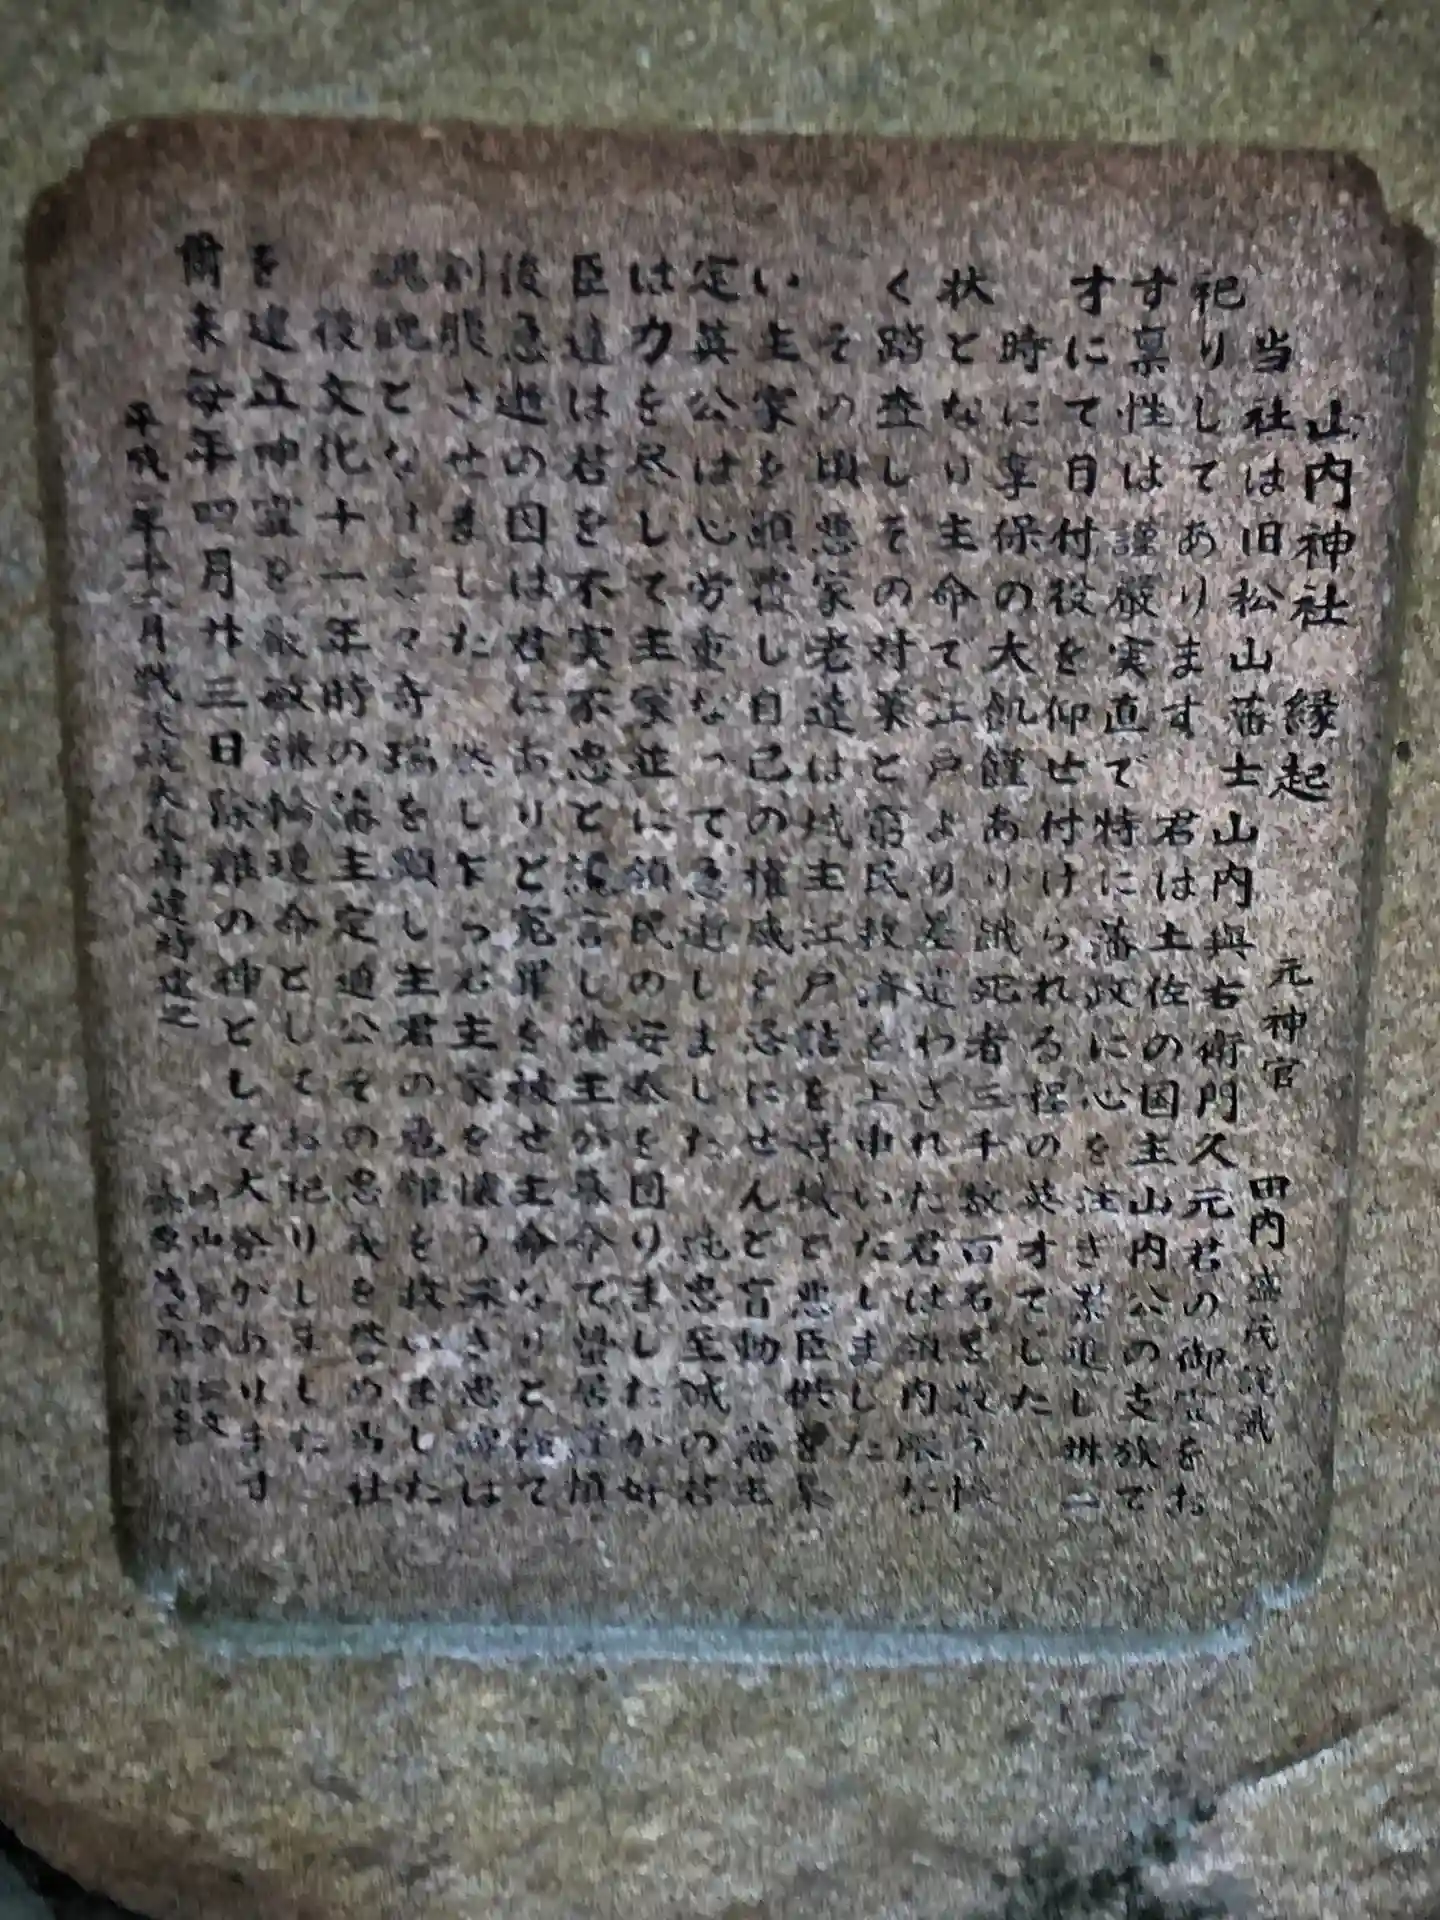 山内神社 縁起
元神官 田内盛茂
当社は旧松山藩士山内與右衛門久元君の御霊をお
祀りしてあります 君は土佐の国主山内公の支族で
す禀性は謹厳実直で特に藩政に心を注ぎ累進し卅二
才にて目付役を仰せ付けられる程の英才でした
時に享保の大飢饉あり餓死者三千数百名を数う惨
状となり主命て江戸より差遣わされた君は領内隈な
く踏査しその対策と窮民救済を上申いたしました
その頃悪家老達は城主江戸詰を好機と悪臣供を集
い主家を顛覆し自己の権威を恣にせんと盲動 藩主
定英公は心労重なって急逝しました 純忠至誠の君
は力を尽して主家並に領民の安泰を図りましたが奸
臣達は君を不実不忠と讒言し藩主が幕命て蟄居謹慎
後急逝の因は君にありと冤罪を被せ主命なりと
割腹させました 然し乍ら君主家を懐う深き忠魂は
魂魄となけ々奇瑞を顕し主君の危難を救いました
後文化十一年時の藩主定通公その忠義を誉め当社
を建立神霊を命としてお祀りしました
爾来毎年四月廿三日除難の神として大祭があります
平成二年十二月